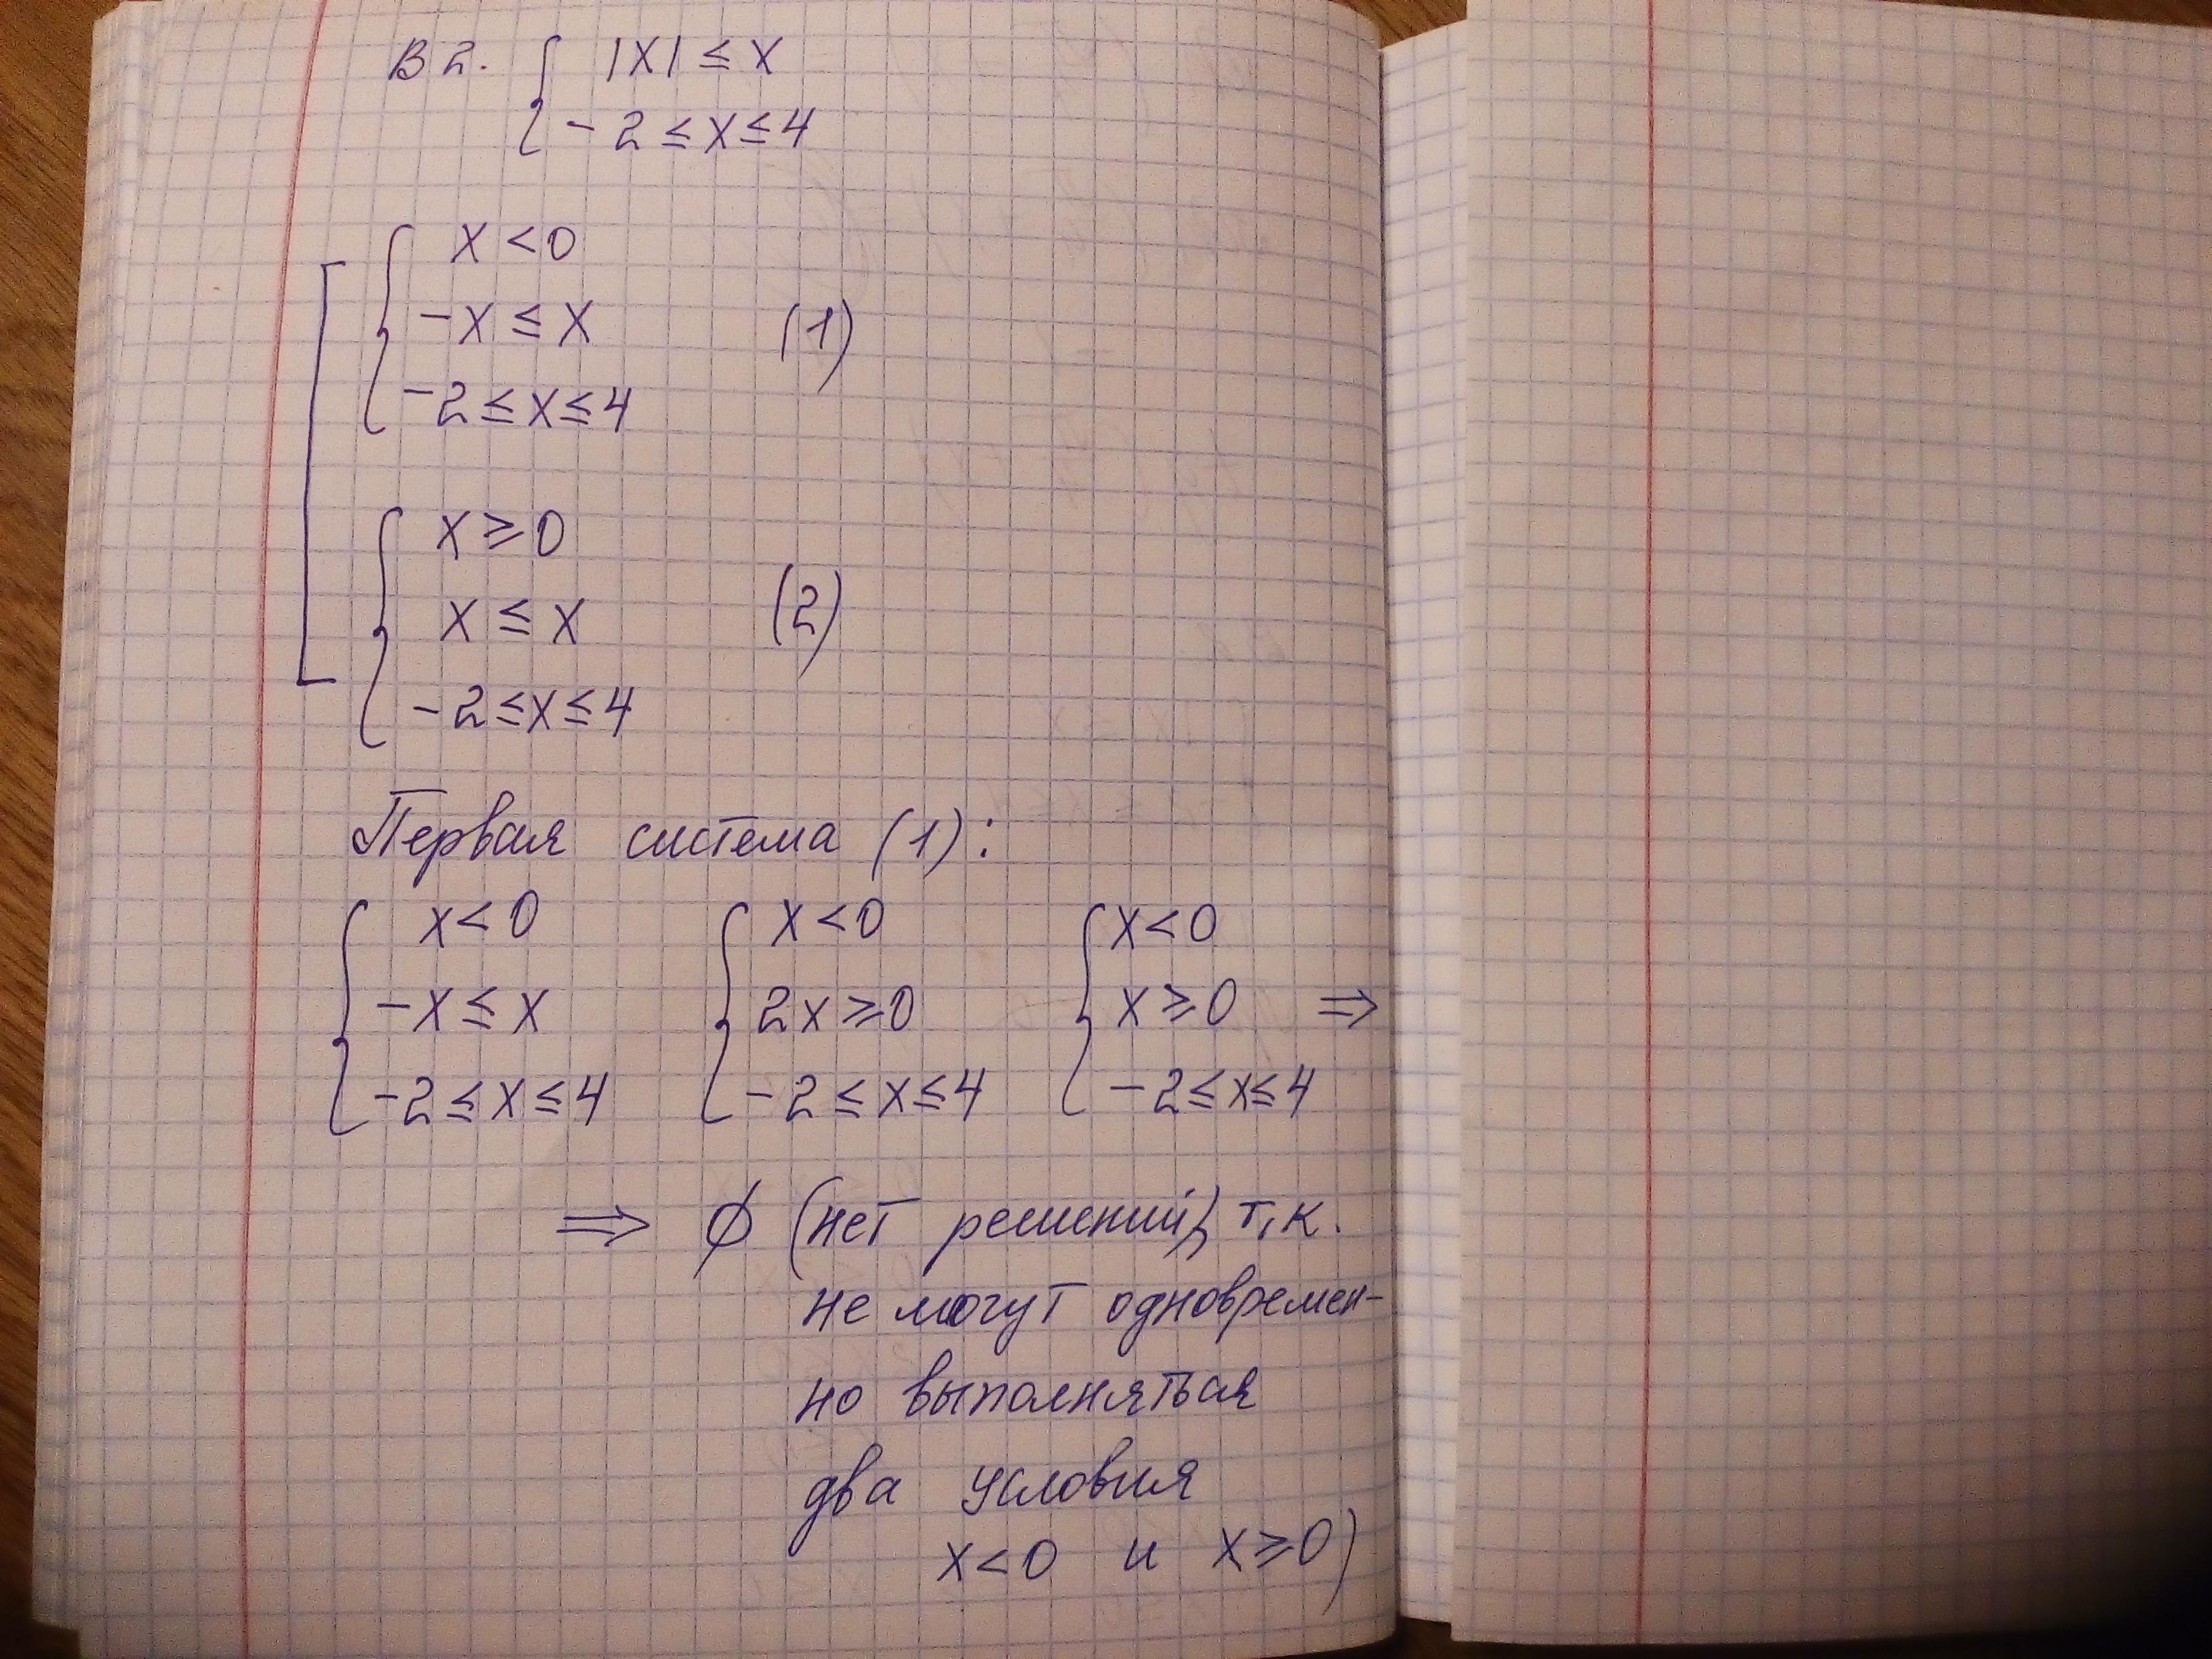 В 2. { |X| ≤ X
-2 ≤ X ≤ 4
[ { X < 0
-X ≤ X (1)
-2 ≤ X ≤ 4
{ X ≥ 0
X ≤ X (2)
-2 ≤ X ≤ 4
Первая система (1):
{ X < 0 { X < 0 { X < 0
-X ≤ X 2X ≥ 0 X ≥ 0 ⇒
-2 ≤ X ≤ 4 -2 ≤ X ≤ 4 -2 ≤ X ≤ 4
⇒ ∅ (нет решений, т.к.
не могут одновремен-
но выполняться
два условия
X < 0 и X ≥ 0)